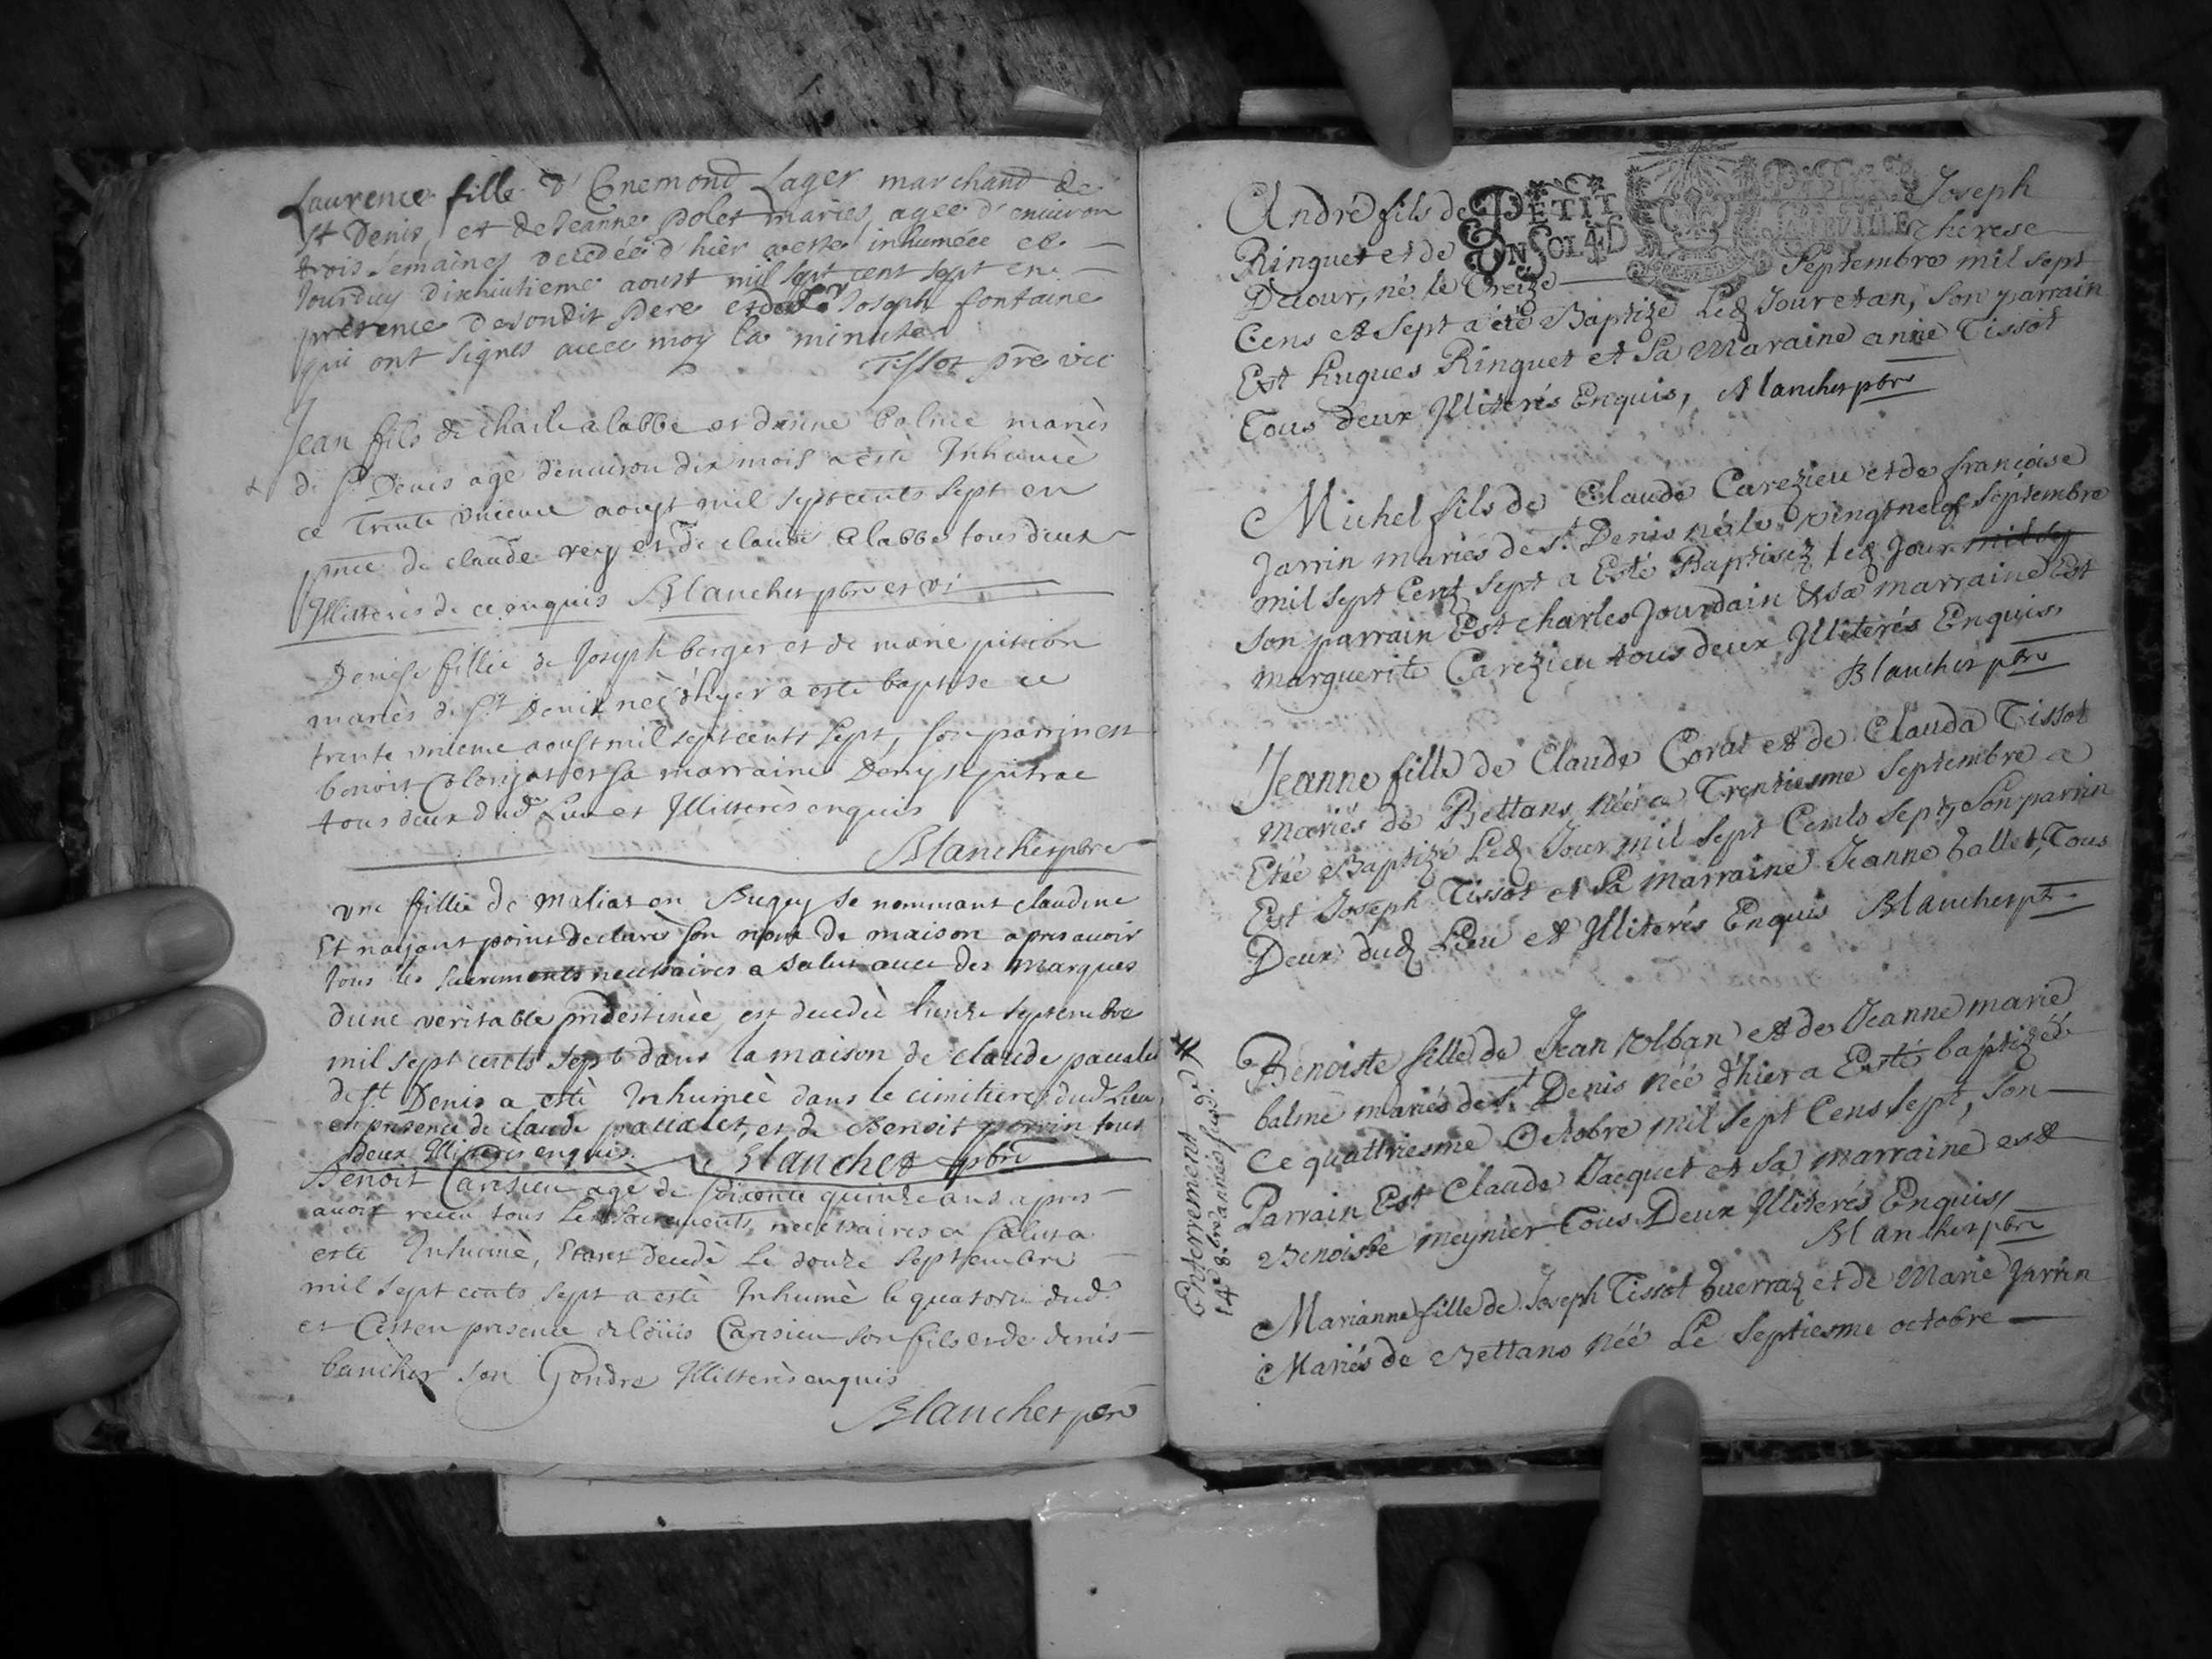 Laurence fille d'Enemond Lager marchand de
St Denis, et de Jeanne polet mariés, agée d'environ
trois semaines decedée d'hier a esté inhumée ce
jourduy dixhuitieme aoust mil sept cent sept en
présence de sondit père et de Sr Joseph fontaine
qui ont signes avec moy la minute
Tissot pre vic
Jean fils de charle alabbe et danne balme mariès
de st Denis agè denuiron dix mois a este Inhumè
ce trente unieme aoust mil sept cents sept en
pnce de claude rey et de claude alabbe tous deux
Illitterès de ce enquis Blanchet pbre et vi
Denise fillie de Joseph berger et de marie pition
mariès de st Denis neè d'hyer a este baptise ce
trente unieme aoust mil sept cents sept, son parrin est
benoit et sa marraine Denyse pitrac
tous deux dud Lieu et Illitterès enquis
Blanchet pbre
une fillie de maliat en Bugey se nommant claudine
Et n'ayant point declaré son nom de maison apres avoir
tous les sacrements necessaires a salut avec des marques
dune veritable predestinèe est decedèe septembre
mil sept cents sept dans la maison de claude
de st Denis a estè Inhumèe dans le cimitiere dud Lieu
en presence de claude et de Benoit perrin tous
deux Illitteres enquis. Blanchet pbre
Benoit Caresieu age de soixante quinze ans apres
avoir receu tous les sacrements necessaires a salut a
este Inhumè, Etant decedè le douze septembre
mil sept cents sept a estè Inhumè le quatorze dud.
et C'est en presence de loüis Caresieu son fils et de denis
bancher son Gendre Illitterès enquis
Blanchet pbre
PETIT
UN SOL 4 D
André fils de Joseph
Ringuet et de Therese
Detour, né le Treize Septembre mil sept
Cens et sept a été Baptizé led Jour et an, son parrain
Est hugues Ringuet et sa Maraine anne Tissot
Tous deux Illiterés Enquis, Blanchet pbre
Michel fils de Claude Carezieu et de françoise
Jarrin mariés de St. Denis né le vingtneuf septembre
mil sept Cent sept a Esté Baptisez led Jour mil sep
son parrain Est charles Jourdain & sa marraine Est
marguerite Carezieu tous deux Illiterés Enquis,
Blanchet pbre
Jeanne fille de Claude Corat et de Clauda Tissot
mariés de Bettans née a Trentiesme septembre a
Etée Baptizé Led Jour mil sept Cents sept, son parrin
Est Joseph Tissot et sa marraine Jeanne ballet, Tous
Deux dud Lieu et Illiterés Enquis Blanchet pbre
Benoiste fille de Jean Alban et de Jeanne marie
balme mariés de St Denis née d'hier a Esté baptizéé
Ce quattriesme Octobre mil sept Cens sept, son
Parrain Est Claude Jacquet et sa marraine est
Benoiste meynier Tous Deux Illiterés Enquis,
Blanchet pbre
Enterrement
14e 8.bre année
Marianne fille de Joseph Tissot Guerraz et de Marie Jarrin
Mariés de Bettans néé Le septiesme octobre